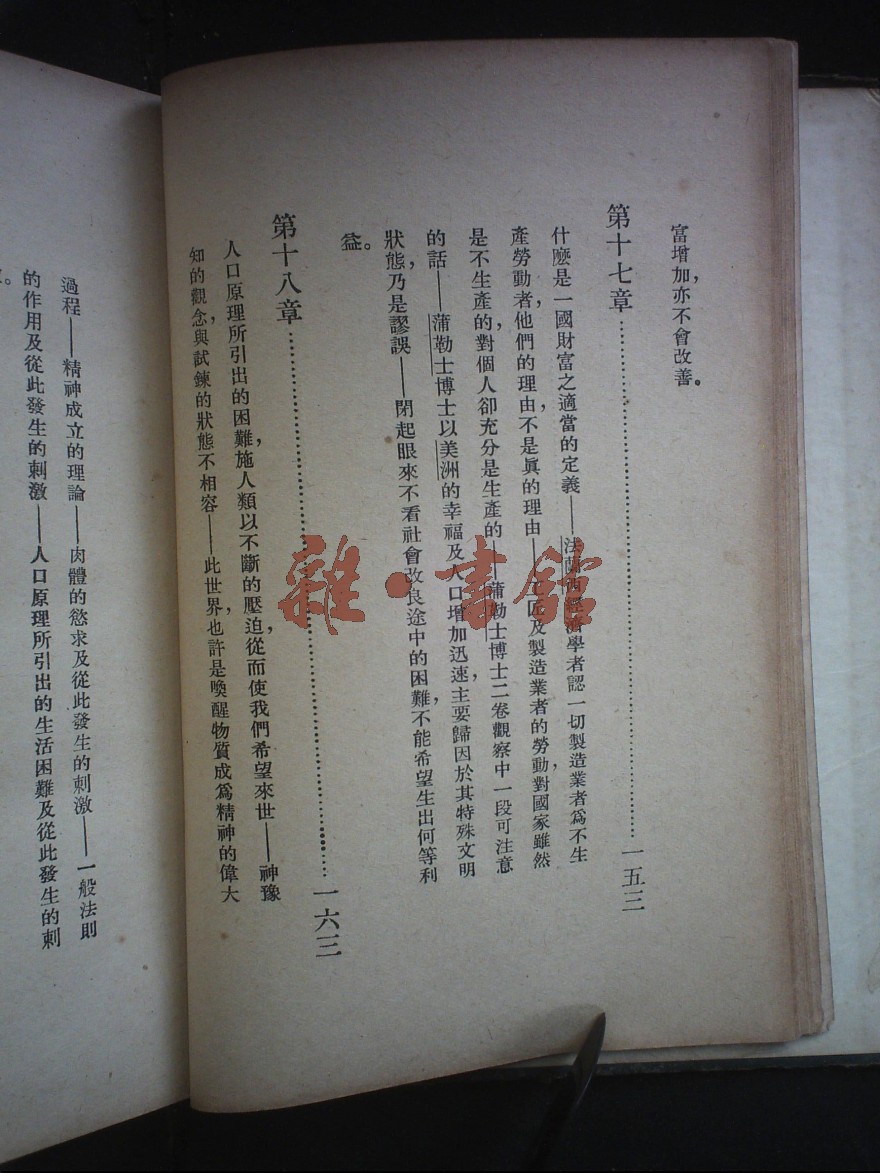 富增加，亦不會改善。
第十七章……一五三
什麼是一國財富之適當的定義——法蘭西經濟學者認一切製造業者爲不生
產勞動者，他們的理由，不是眞的理由——工匠及製造業者的勞動，對國家雖然
是不生產的，對個人卻充分是生產的——蒲勒士博士二卷觀察中一段可注意
的話——蒲勒士博士以美洲的幸福及人口增加迅速，主要歸因於其特殊文明
狀態，乃是謬誤——閉起眼來不看社會改良途中的困難，不能希望生出何等利
益。
第十八章……一六三
人口原理所引出的困難，施人類以不斷的壓迫，從而使我們希望來世——神豫
知的觀念，與試鍊的狀態不相容——此世界也許是喚醒物質成爲精神的偉大
過程——精神成立的理論——肉體的慾求及從此發生的刺激——一般法則
的作用及從此發生的刺激——人口原理所引出的生活困難及從此發生的刺
。
雜·書館